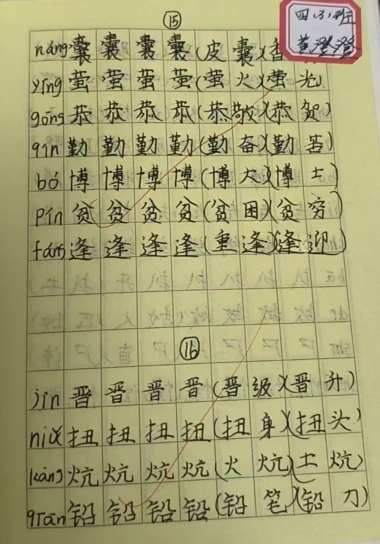 ⑮
四、3班
náng 囊 囊 囊 囊 (皮 囊)(香
yíng 萤 萤 萤 萤 (萤 火)(萤 光
gōng 恭 恭 恭 恭 (恭敬)(恭 贺)
qín 勤 勤 勤 勤 (勤 奋)(勤 苦)
bó 博 博 博 博 (博 大)(博 士)
pín 贫 贫 贫 贫 (贫 困)(贫 穷)
féng 逢 逢 逢 逢 (重 逢)(逢 迎)
⑯
jìn 晋 晋 晋 晋 (晋 级)(晋 升)
niǔ 扭 扭 扭 扭 (扭 身)(扭 头)
kàng 炕 炕 炕 炕 (火 炕)(土 炕)
qiān 铅 铅 铅 铅 (铅 笔)(铅 刀)